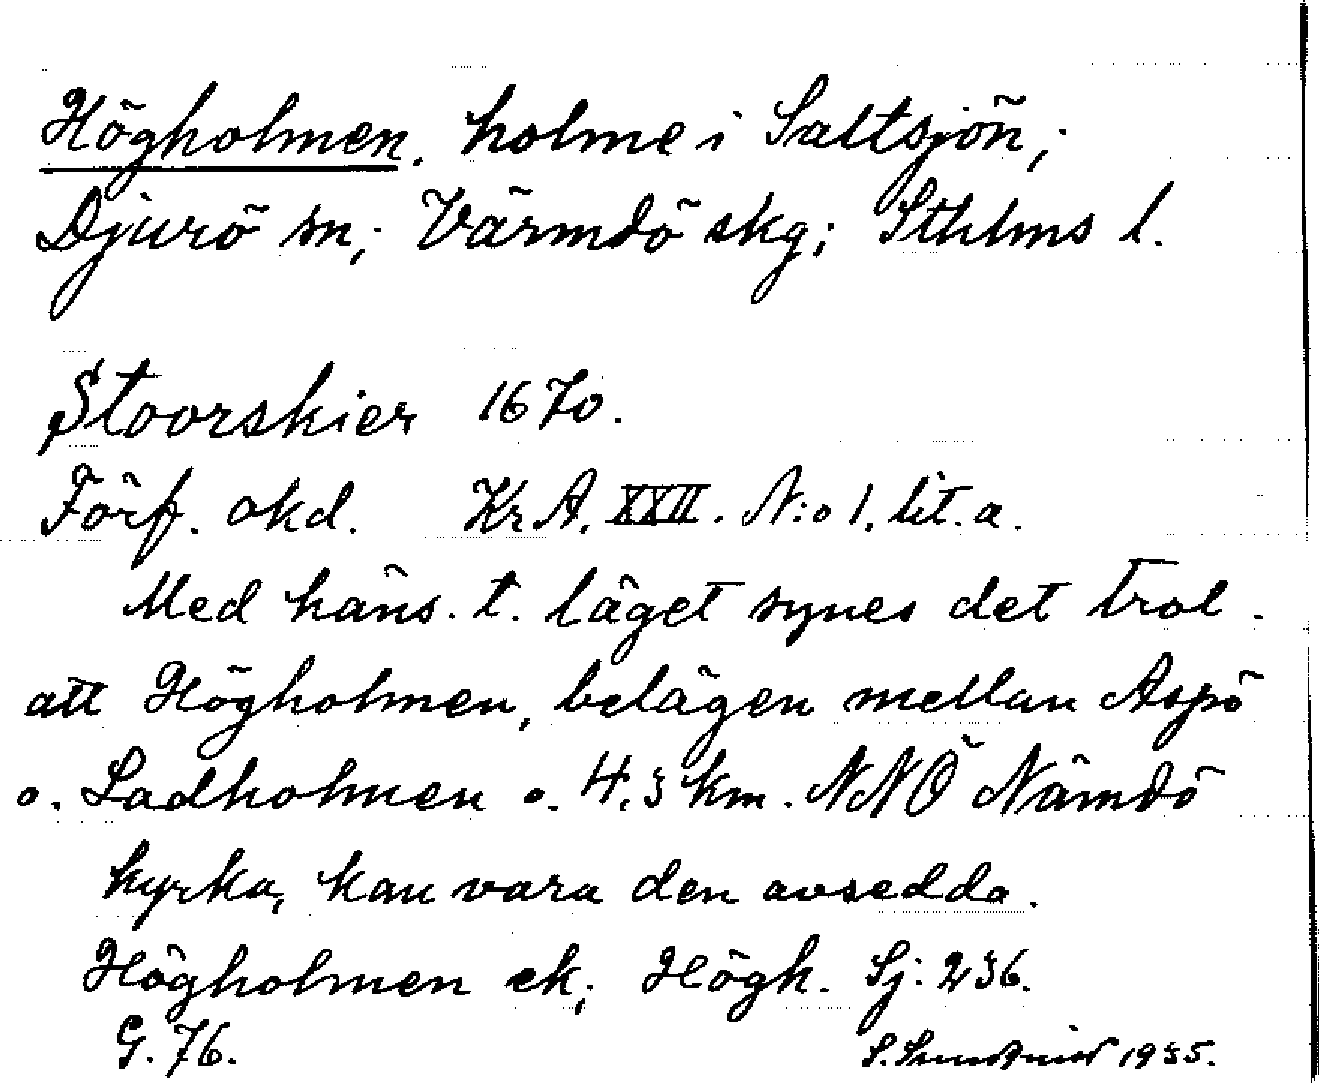 Högholmen. holme i Saltsjön;
Djurö sn; Värmdö skg; Sthlms l.
Stoorskier 1670.
Förf. okd. Kr A. XXII. N:o 1. lit. a.
Med häns. t. läget synes det trol.
att Högholmen, belägen mellan Aspö
o. Ladholmen o. 4.3 km. NNÖ Nämdö
kyrka, kan vara den avsedda.
Högholmen ek; Högh. Sj: 236.
G. 76. 1935.